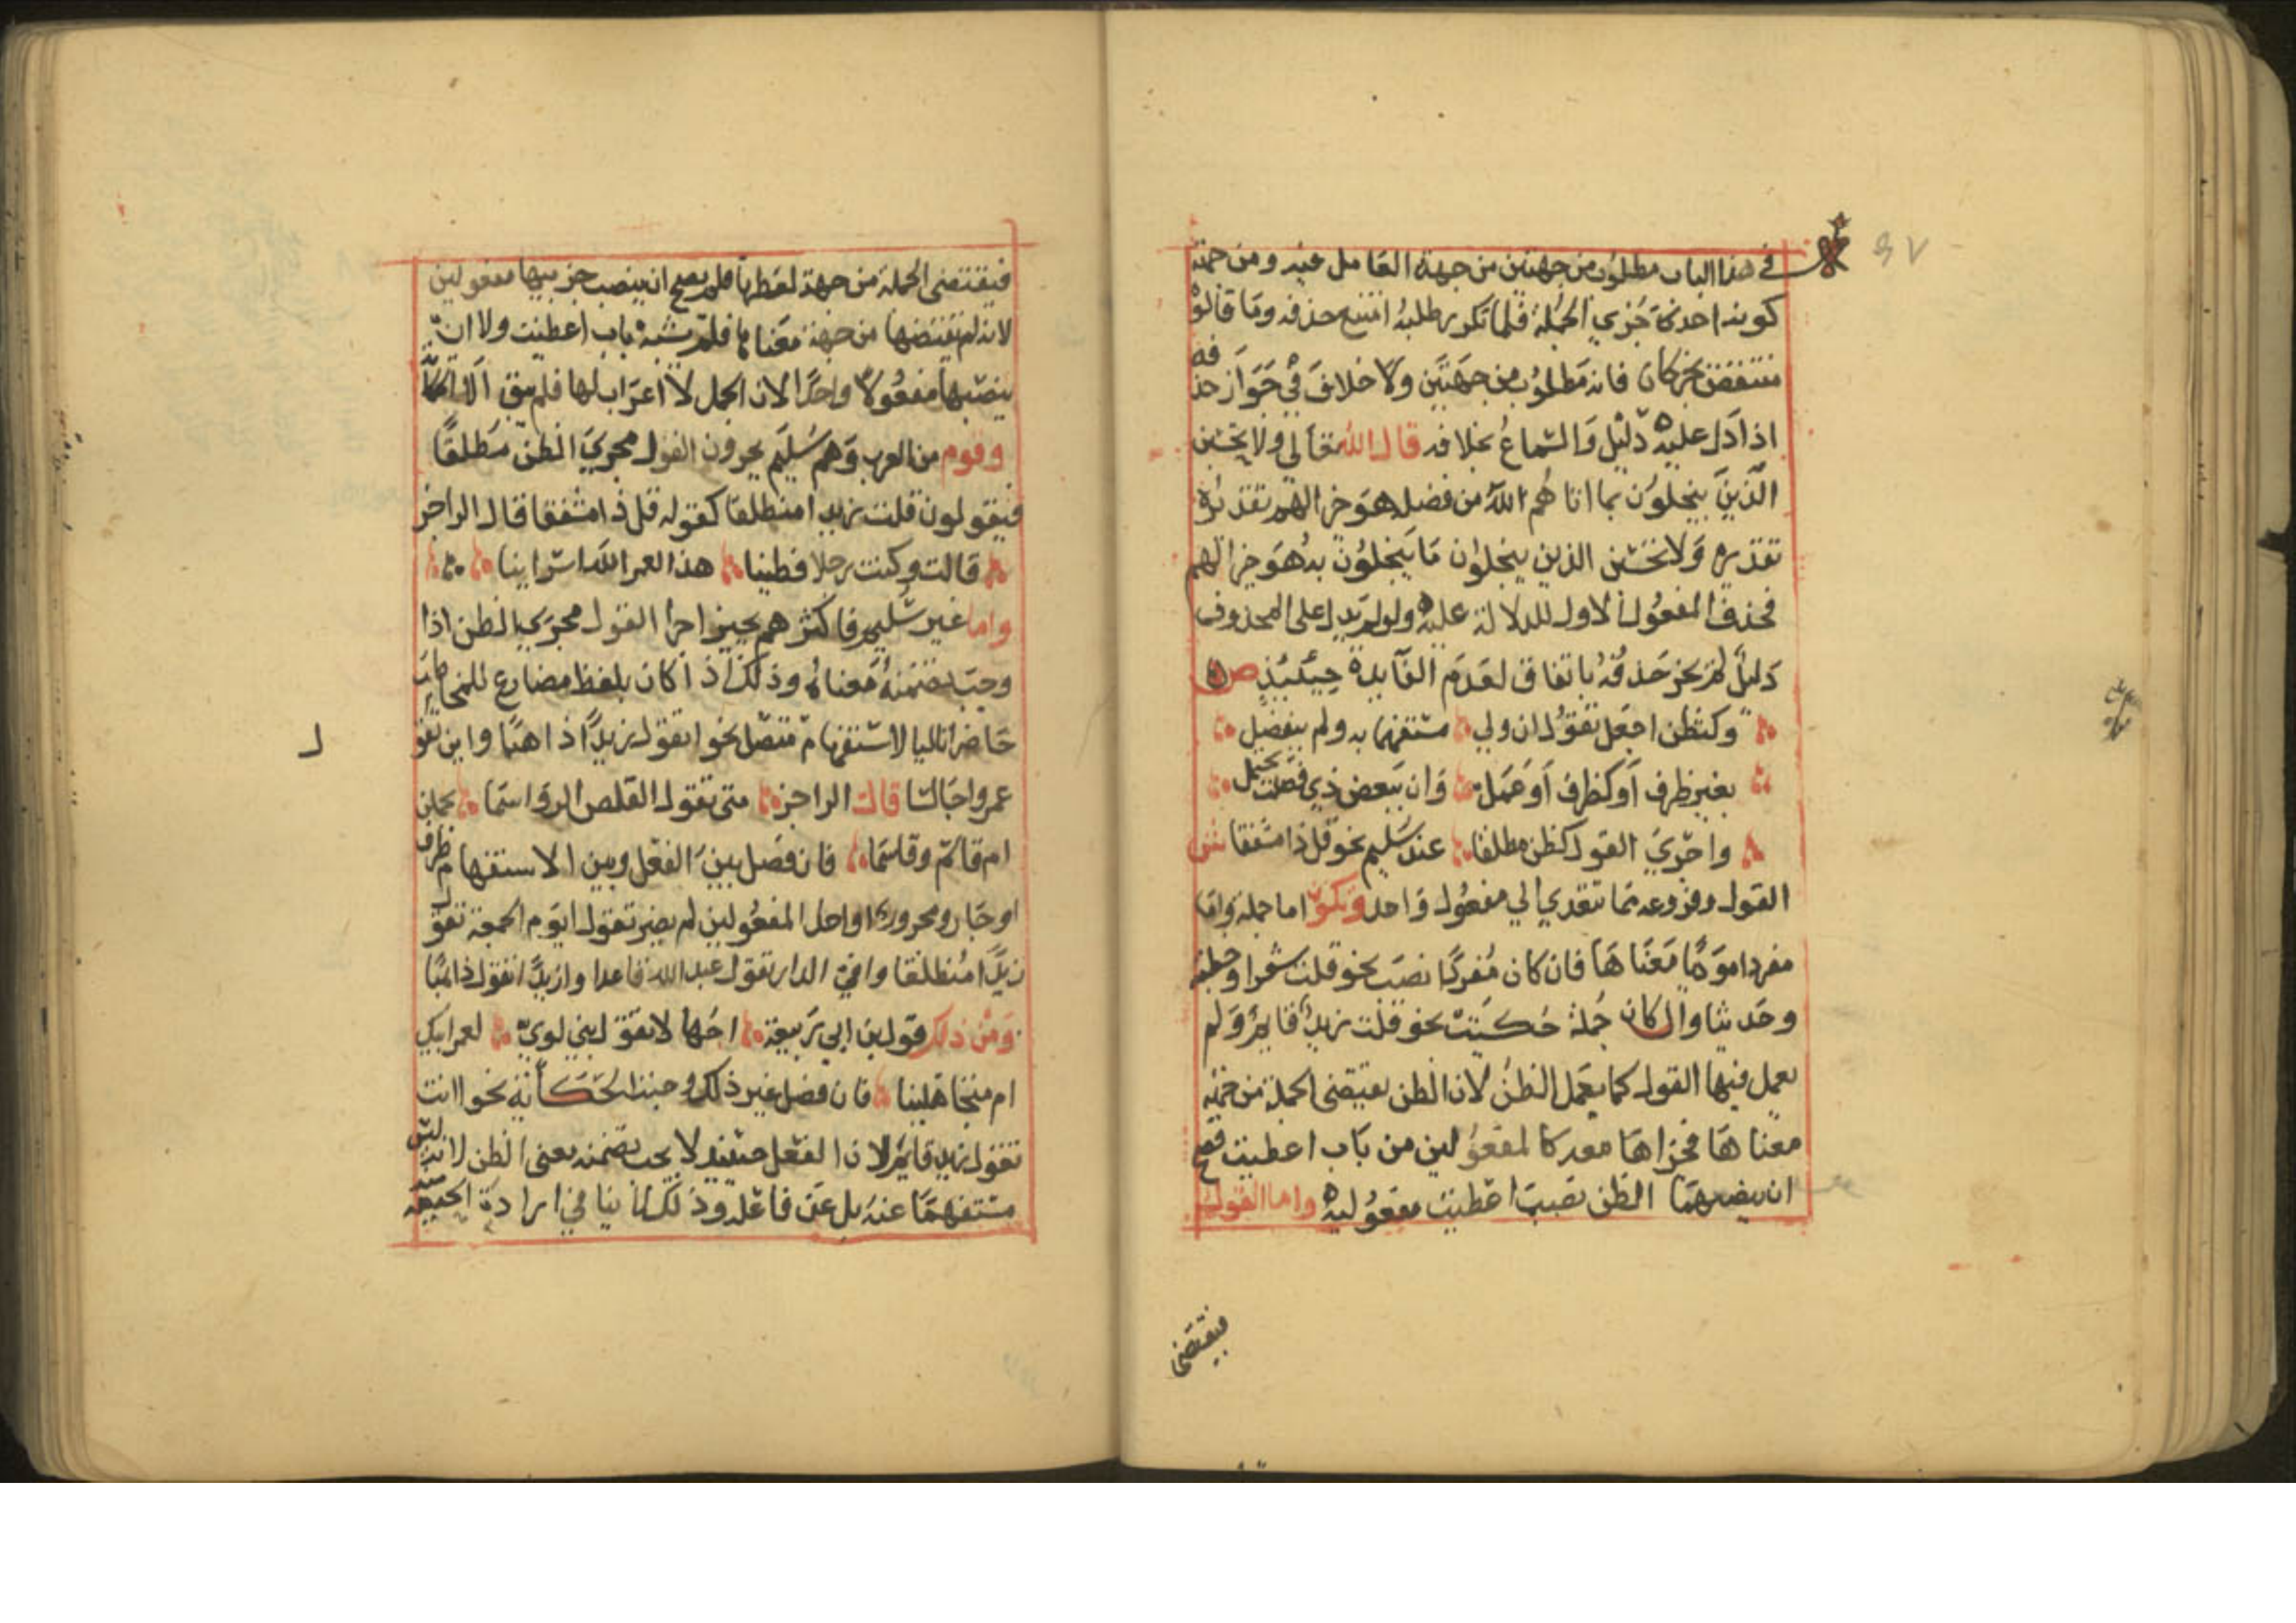 ٩٧
في هذا الباب مطلوب من جهتين من جهة العامل فيه ومن جهة
كونه احد جزءي الجملة فلما تكرر طلبه امتنع حذفه وما قالوه
منتقض بخبر كان فانه مطلوب من جهتين ولا خلاف في جواز حذفه
اذا دل عليه دليل والسماع بخلافه قال الله تعالى ولا يحسبن
الذين يبخلون بما اتاهم الله من فضله هو خيرا لهم تقديره
تقديره ولا تحسبن الذين يبخلون ما يبخلون به هو خيرا لهم
فحذف المفعول الاول للدلالة عليه ولو لم يدل على المحذوف
دليل لم يجز حذفه باتفاق لعدم الفايدة حينئذ ص
وكتظن اجعل تقول ان ولي مستفهما به ولم ينفصل
بغير ظرف او كظرف او عمل وان ببعض ذي فصلت يحتمل
واجري القول كظن مطلقا عند سليم نحو قل ذا مشفقا ش
القول وفروعه مما تتعدي الي مفعول واحد ويكون اما جملة واما
مفردا مؤديا معناها فان كان مفردا نصب نحو قلت شعرا وخطبة
وحديثا وان كان جملة حكيت نحو قلت زيد قايم ولم
يعمل فيها القول كما يعمل الظن لان الظن يقتضي الجملة من جهة
معناها فجزاها معه كالمفعولين من باب اعطيت فصح
ان ينصبهما الظن نصب اعطيت مفعوليه واما القول
فيقتضي
فيقتضي الجملة من جهة لفظها فلم يصح ان ينصب جزييها مفعولين
لانه لم يقتضها من جهة معناها فلم يشبه باب اعطيت ولا ان
ينصبها مفعولا واحدا لان الجمل لا اعراب لها فلم يبق الا الحكاية
وقوم من العرب وهم سليم يجرون القول مجري الظن مطلقا
فيقولون قلت زيدا منطلقا كقوله قل ذا مشفقا قال الراجز
قالت وكنت رجلا فطينا هذا لعمر الله اسراينا
واما غير سليم فاكثرهم يجيز اجرا القول مجري الظن اذا
وجب تضمنه معناه وذلك اذا كان بلفظ مضارع للمخاطب
حاضرا تاليا لاستفهام متصل نحو اتقول زيدا ذاهبا واين تقول
عمرا جالسا قال الراجز متى تقول القلص الرواسما يحملن
ام قاسم وقاسما فان فصل بين الفعل وبين الاستفهام ظرف
او جار ومجرور او احد المفعولين لم يضر تقول ايوم الجمعة تقول
زيدا منطلقا وافي الدار تقول عبد الله قاعدا وازيدا تقول ذاهبا
ومن ذلك قول بن ابي ربيعة اجهالا تقول بني لوي لعمر ابيك
ام متجاهلينا فان فصل غير ذلك وجبت الحكاية نحو اانت
تقول زيد قايم لان الفعل حينئذ لا يجب تضمنه معنى الظن لانه ليس
مستفهما عنه بل عن فاعله وذلك لا ينافي ارادة الحقيقة منه